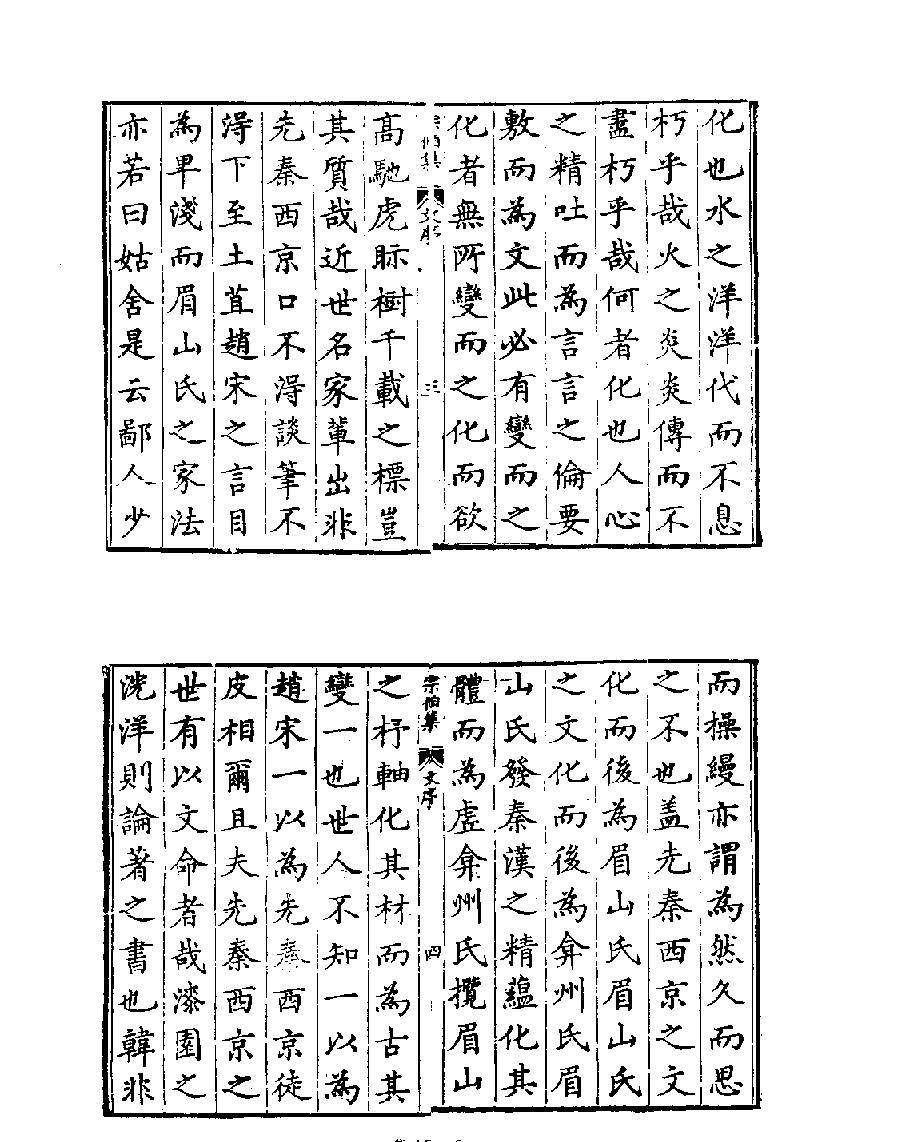 化也水之洋洋代而不息
朽乎哉火之炎炎傳而不
盡朽乎哉何者化也人心
之精吐而為言言之倫要
敷而為文此必有變而之
化者無所變而之化而欲
宗伯集 文序 三
高馳虎眎樹千載之標豈
其質哉近世名家軰出非
先秦西京口不得談筆不
得下至土苴趙宋之言目
為卑淺而眉山氏之家法
亦若曰姑舍是云鄙人少
而操縵亦謂為然久而思
之不也盖先秦西京之文
化而後為眉山氏眉山氏
之文化而後為弇州氏眉
山氏發秦漢之精蘊化其
體而為虗弇州氏攬眉山
宗伯集 文序 四
之杼軸化其材而為古其
變一也世人不知一以為
趙宋一以為先秦西京徒
皮相爾且夫先秦西京之
世有以文命者哉漆園之
洸洋則論著之書也韓非